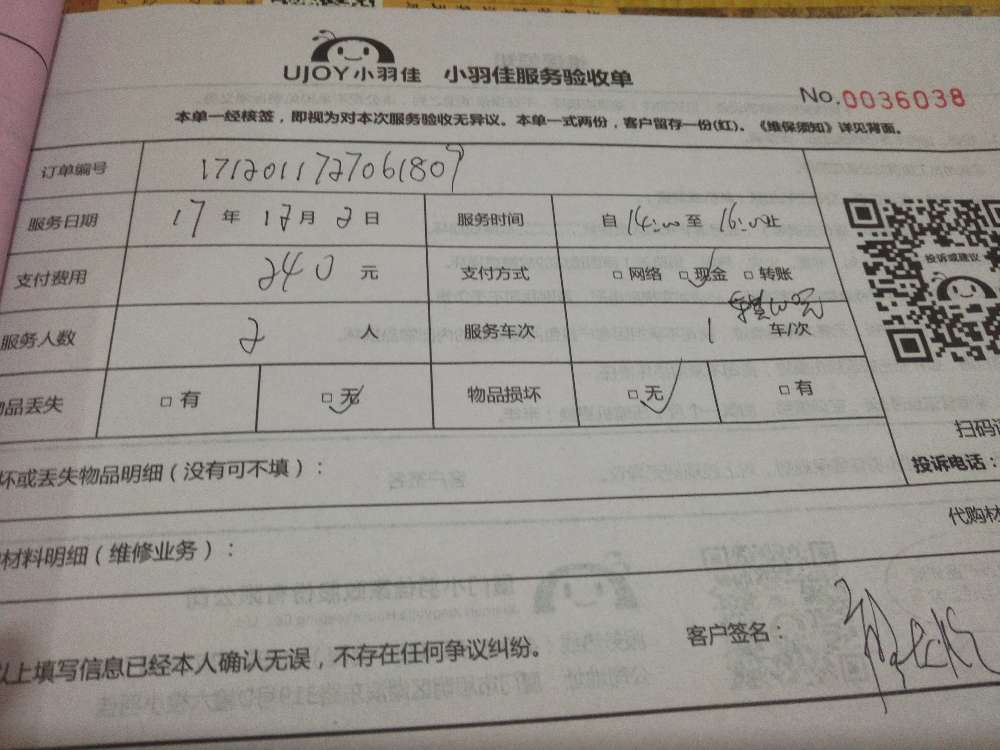 UJOY小羽佳 小羽佳服务验收单
No.0036038
本单一经核签，即视为对本次服务验收无异议。本单一式两份，客户留存一份(红)。《维保须知》详见背面。
订单编号 1712011727061807
服务日期 17 年 12 月 2 日 服务时间 自 14:00 至 16:00 止
支付费用 240 元 支付方式 □ 网络 □ 现金 □ 转账
服务人数 2 人 服务车次 1 车/次
品丢失 □ 有 □ 无 物品损坏 □ 无 □ 有
投诉或建议
扫码
投诉电话：
坏或丢失物品明细（没有可不填）：
代购材
材料明细（维修业务）：
以上填写信息已经本人确认无误，不存在任何争议纠纷。
客户签名：